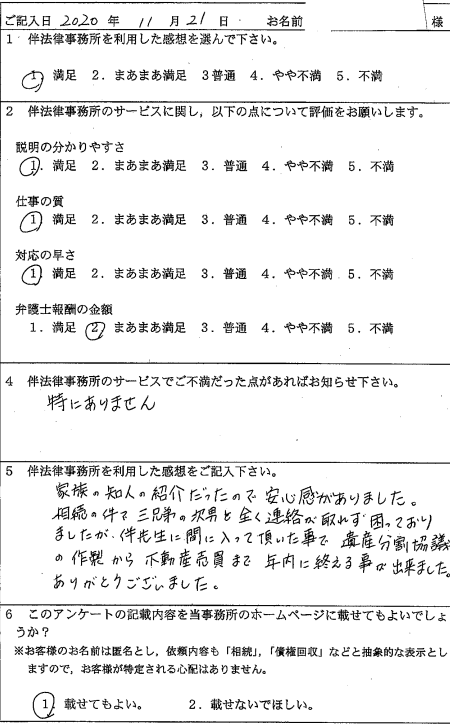 ご記入日 2020 年 11 月 21 日 お名前 様
1 伴法律事務所を利用した感想を選んで下さい。
1 満足 2．まあまあ満足 3普通 4．やや不満 5．不満
2 伴法律事務所のサービスに関し，以下の点について評価をお願いします。
説明の分かりやすさ
1．満足 2．まあまあ満足 3．普通 4．やや不満 5．不満
仕事の質
1 満足 2．まあまあ満足 3．普通 4．やや不満 5．不満
対応の早さ
1 満足 2．まあまあ満足 3．普通 4．やや不満 5．不満
弁護士報酬の金額
1．満足 2 まあまあ満足 3．普通 4．やや不満 5．不満
4 伴法律事務所のサービスでご不満だった点があればお知らせ下さい。
特にありません
5 伴法律事務所を利用した感想をご記入下さい。
家族の知人の紹介だったので安心感がありました。
相続の件で三兄弟の次男と全く連絡が取れず困っており
ましたが、伴先生に間に入って頂いた事で遺産分割協議
の作製から不動産売買まで年内に終える事が出来ました。
ありがとうございました。
6 このアンケートの記載内容を当事務所のホームページに載せてもよいでしょ
うか？
※お客様のお名前は匿名とし，依頼内容も「相続」，「債権回収」などと抽象的な表示とし
ますので，お客様が特定される心配はありません。
1 載せてもよい。 2．載せないでほしい。